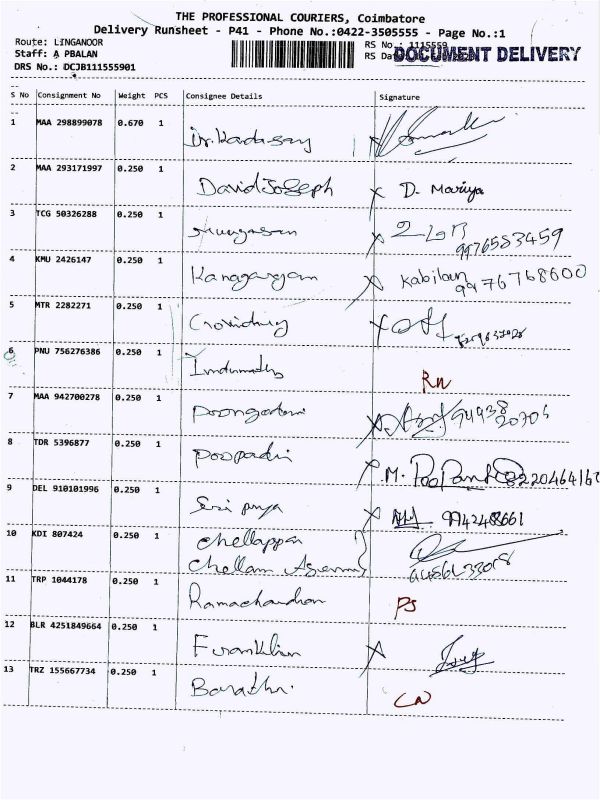 THE PROFESSIONAL COURIERS, Coimbatore
Delivery Runsheet - P41 - Phone No.:0422-3505555 - Page No.:1
Route: LINGANOOR RS No.: 1115559
Staff: A PBALAN RS Da DOCUMENT DELIVERY
DRS No.: DCJB111555901
S No Consignment No Weight PCS Consignee Details Signature
1 MAA 298899078 0.670 1
2 MAA 293171997 0.250 1 David Joseph X D. Mariya
3 TCG 50326288 0.250 1 X 9976583459
4 KMU 2426147 0.250 1 Kanagarajam X Kabilan 9976768600
5 MTR 2282271 0.250 1 X
6 PNU 756276386 0.250 1 Indumathy RN
7 MAA 942700278 0.250 1 X 94438 20705
8 TDR 5396877 0.250 1 Poopadi X M.
9 DEL 910101996 0.250 1 Sri priya X 994248661
10 KDI 807424 0.250 1 Chellappan
Chellam
11 TRP 1044178 0.250 1 Ramachandran PS
12 BLR 4251849664 0.250 1 Franklin X
13 TRZ 155667734 0.250 1 Barathi CN